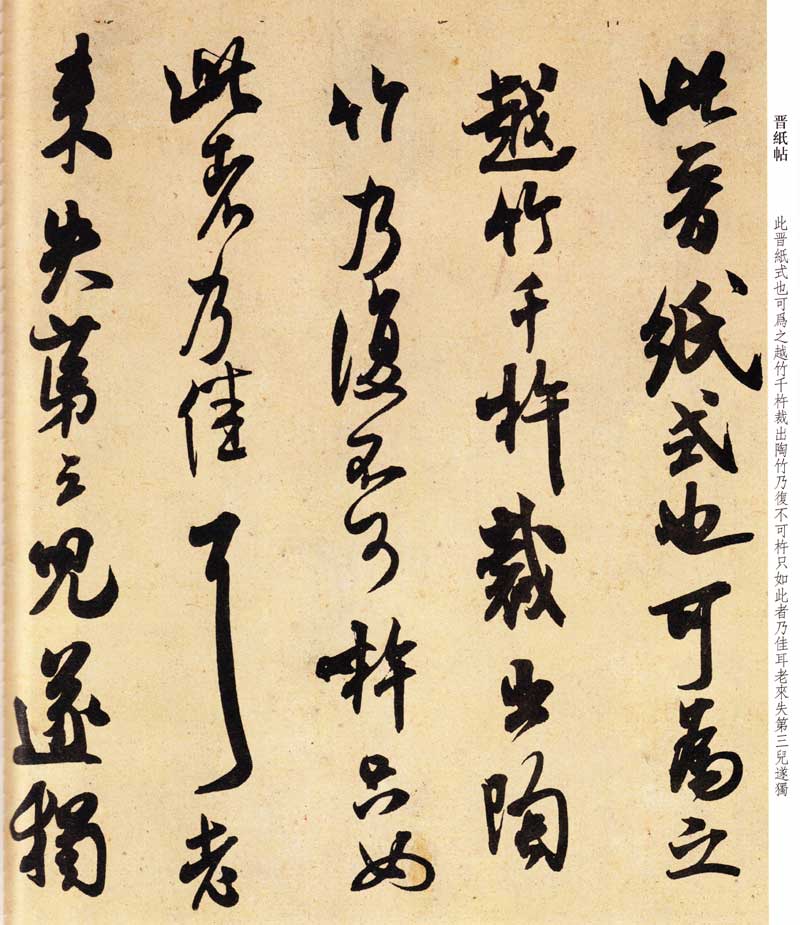 晋紙帖
此晋紙式也可爲之越竹千杵裁出陶竹乃復不可杵只如此者乃佳耳老來失第三兒遂獨
此晋紙式也可為之
越竹千杵裁出陶
竹乃復不可杵只如
此者乃佳耳老
来失苐三兒遂獨